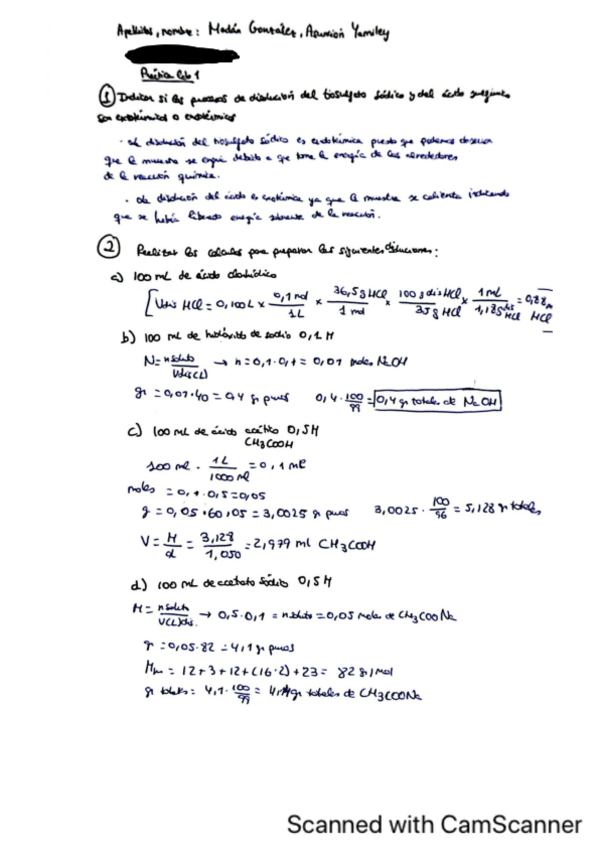 Apellidos, nombre: Madán González, Asunción Yamiley
Práctica Lab 1
① Indicar si los procesos de disolución del tiosulfato sódico y del ácido sulfúrico
son exotérmicos o endotérmicos
· La disolución del tiosulfato sódico es endotérmica puesto que podemos observar
que la muestra se enfría debido a que toma la energía de los alrededores
de la reacción química.
· La disolución del ácido es exotérmica ya que la muestra se calienta indicando
que se había liberado energía de la reacción.
② Realizar los cálculos para preparar las siguientes disoluciones:
a) 100 mL de ácido clorhídrico
HCl = 0,100L x 0,1 mol / 1L x 36,5g HCl / 1 mol x 100 g dis HCl / 35 g HCl x 1 ml / 1,18 g dis HCl = 0,88 HCl
b) 100 mL de hidróxido de sodio 0,1 M
N = n soluto / Vdis(L) → n = 0,1 · 0,1 = 0,01 moles NaOH
gr = 0,01 · 40 = 0,4 gr puros 0,4 · 100/99 = 0,4 gr totales de NaOH
c) 100 mL de ácido acético 0,5M
CH3COOH
100 ml · 1L / 1000 ml = 0,1 ml
moles = 0,1 · 0,5 = 0,05
g = 0,05 · 60,05 = 3,0025 gr puros 3,0025 · 100/96 = 5,128 gr totales
V = M/d = 3,128 / 1,050 = 2,979 ml CH3COOH
d) 100 mL de acetato sódico 0,5M
M = n soluto / V(L)dis. → 0,5 · 0,1 = n soluto = 0,05 moles de CH3COONa
gr = 0,05 · 82 = 4,1 gr puros
Mm = 12+3+12+(16·2)+23 = 82 gr/mol
gr totales: 4,1 · 100/99 = 4,14 gr totales de CH3COONa
Scanned with CamScanner